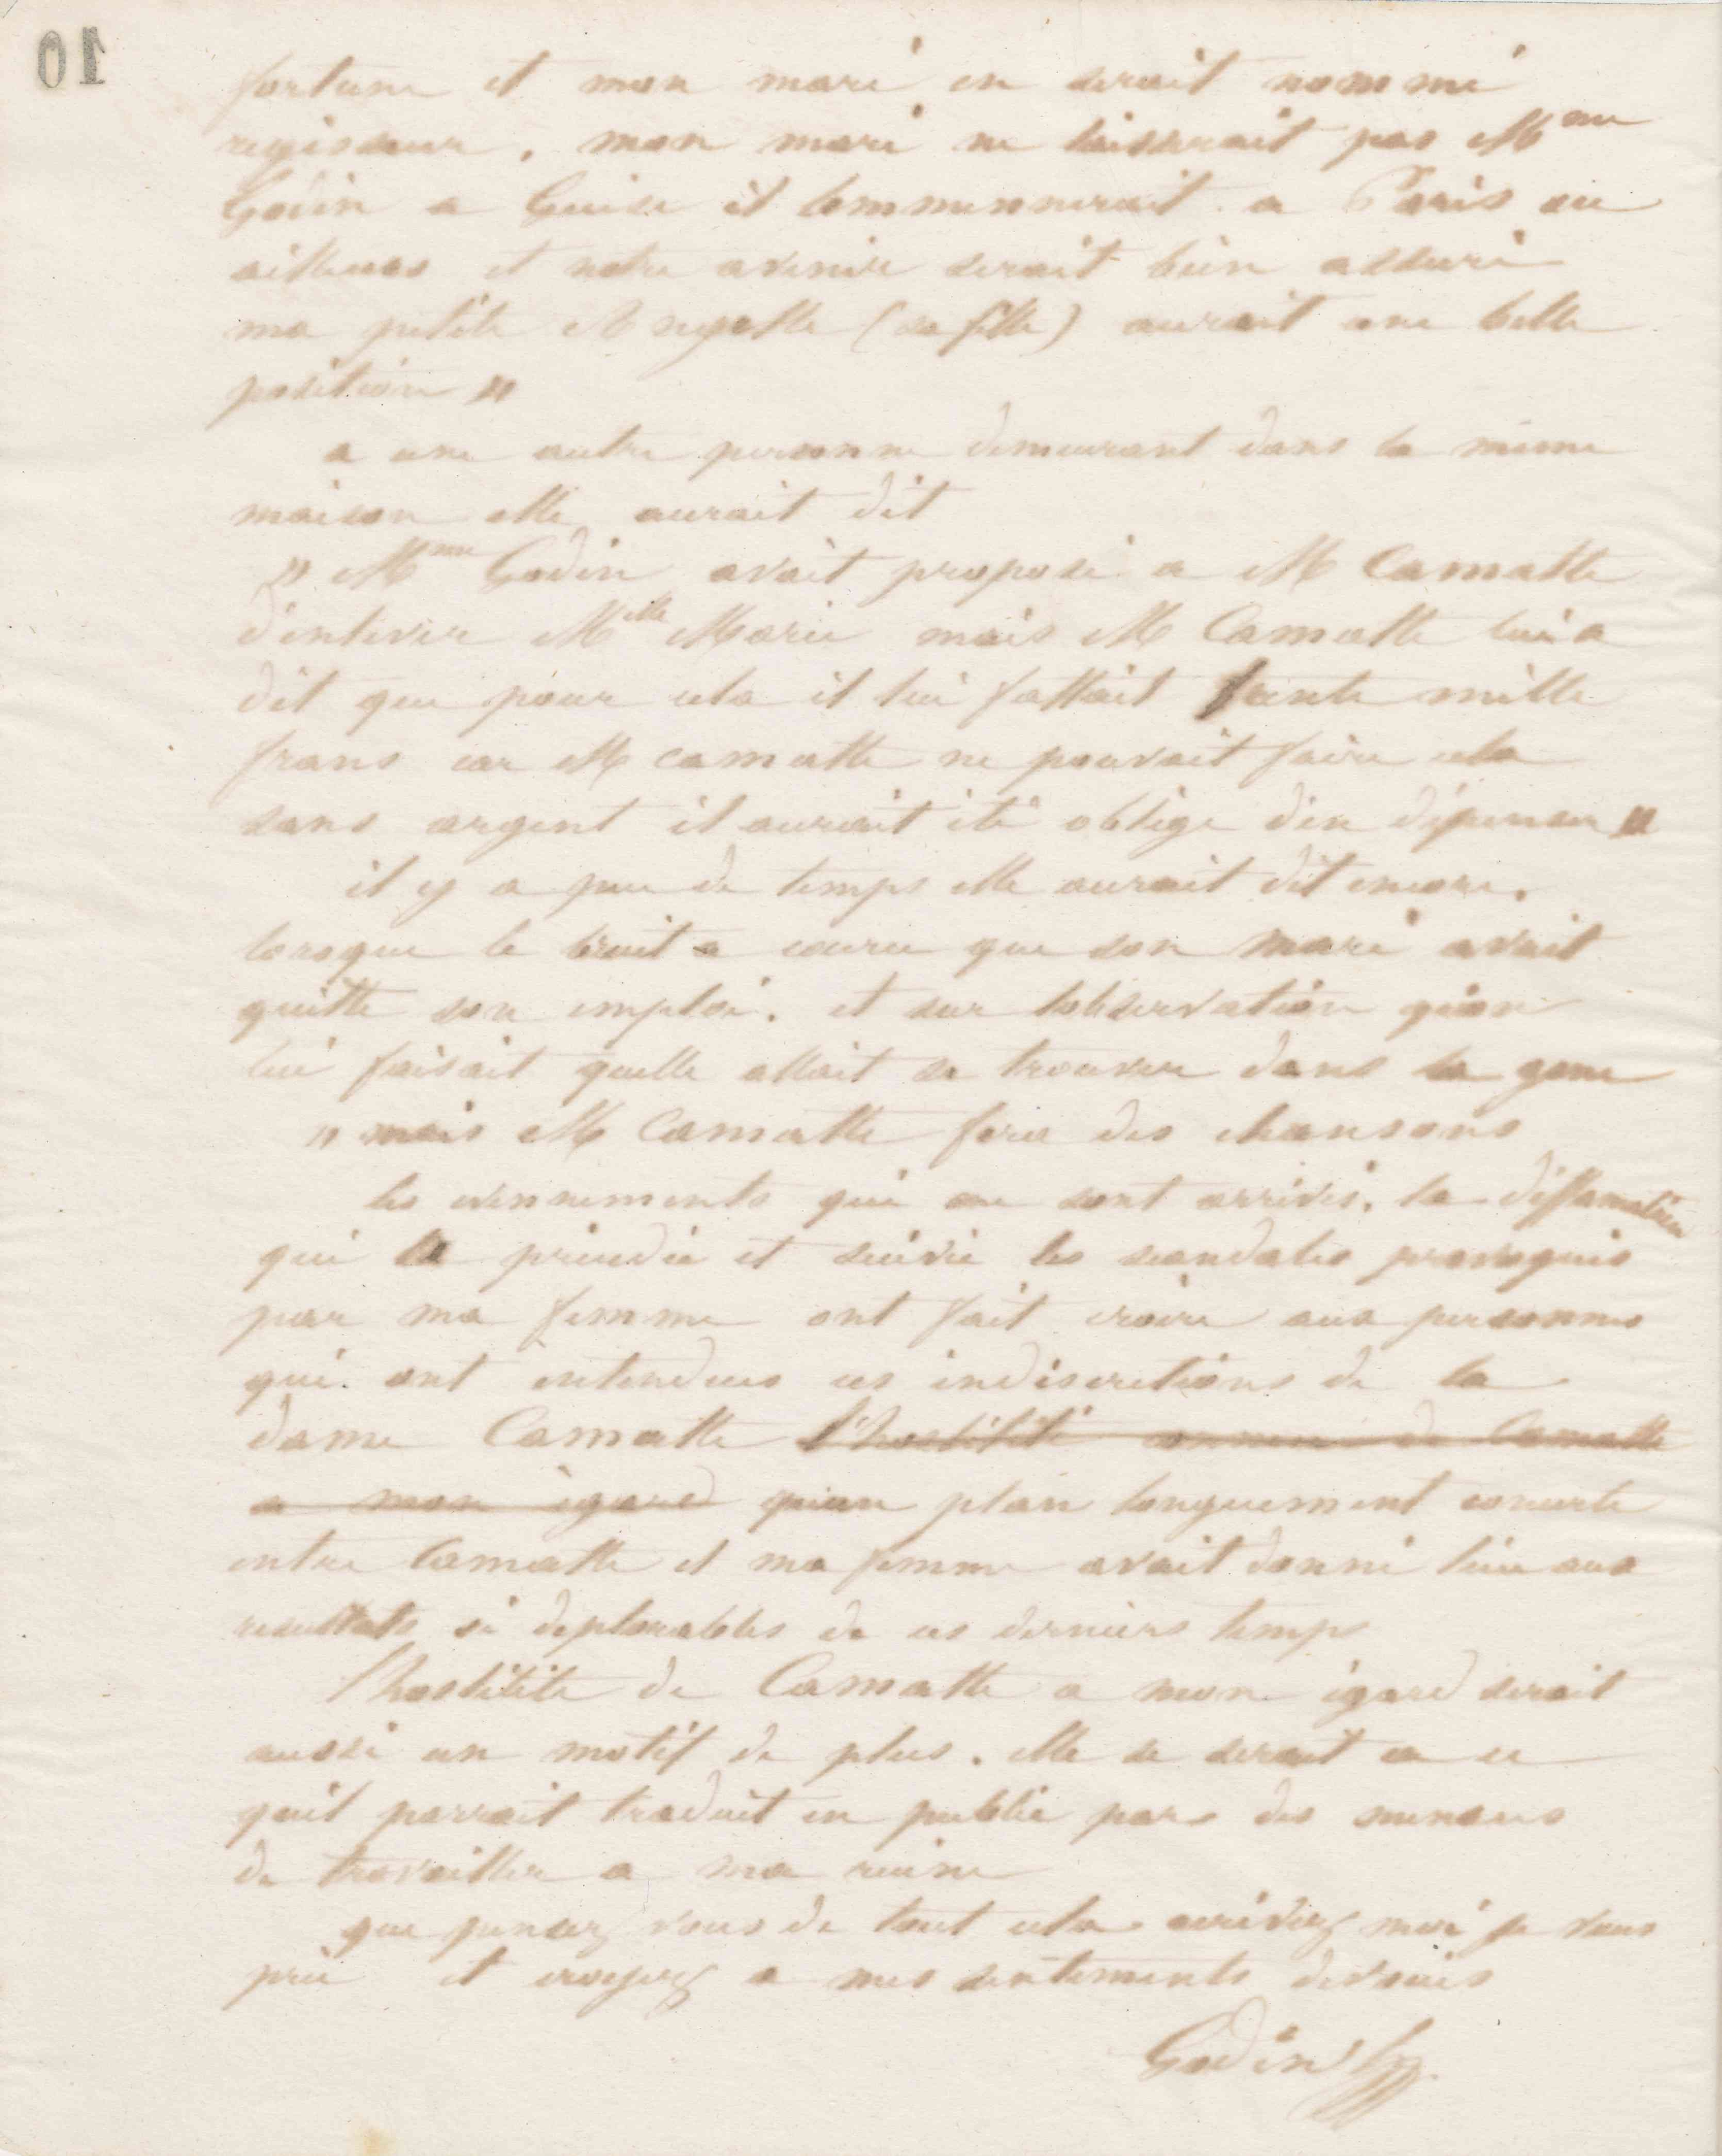 10
fortune et mon mari en serait nommé
regisseur. mon mari ne laisserait pas Mme
Godin a Guise il lemmennerait a Paris ou
ailleurs et notre avenir serait bien assuré
ma petite Angelle (sa fille) aurait une belle
position »
a une autre personne demeurant dans la même
maison elle aurait dit
» Mme Godin avait proposé a M Camatte
d'enlever Melle Marie mais M Camatte lui a
dit que pour cela il lui fallait trente mille
frans car M camatte ne pouvait faire cela
sans argent il aurait été oblige d'en dépenser »
il y a peu de temps elle aurait dit encore.
lorsque le bruit a couru que son mari avait
quitte son emploi. et sur lobservation qu'on
lui faisait quelle allait se trouver dans la gene
» mais M Camatte fera des chansons
les evennements qui me sont arrivés. la diffamation
qui la précédée et suivie les scandales provoqués
par ma femme ont fait croire aux personnes
qui ont entendues ces indiscretions de la
dame Camatte l'hostilité connue de Camatte
a mon égard qu'un plan longuement concerte
entre Camatte et ma femme avait donné lieu aux
resultats si deplorables de ces derniers temps
l'hostilite de Camatte a mon égard serait
aussi un motif de plus. elle se serait a ce
quil parrait traduit en public par des menaces
de travailler a ma ruine
que pensez vous de tout cela ecrivez moi je vous
prie et croyez a mes sentements dévoués
Godin